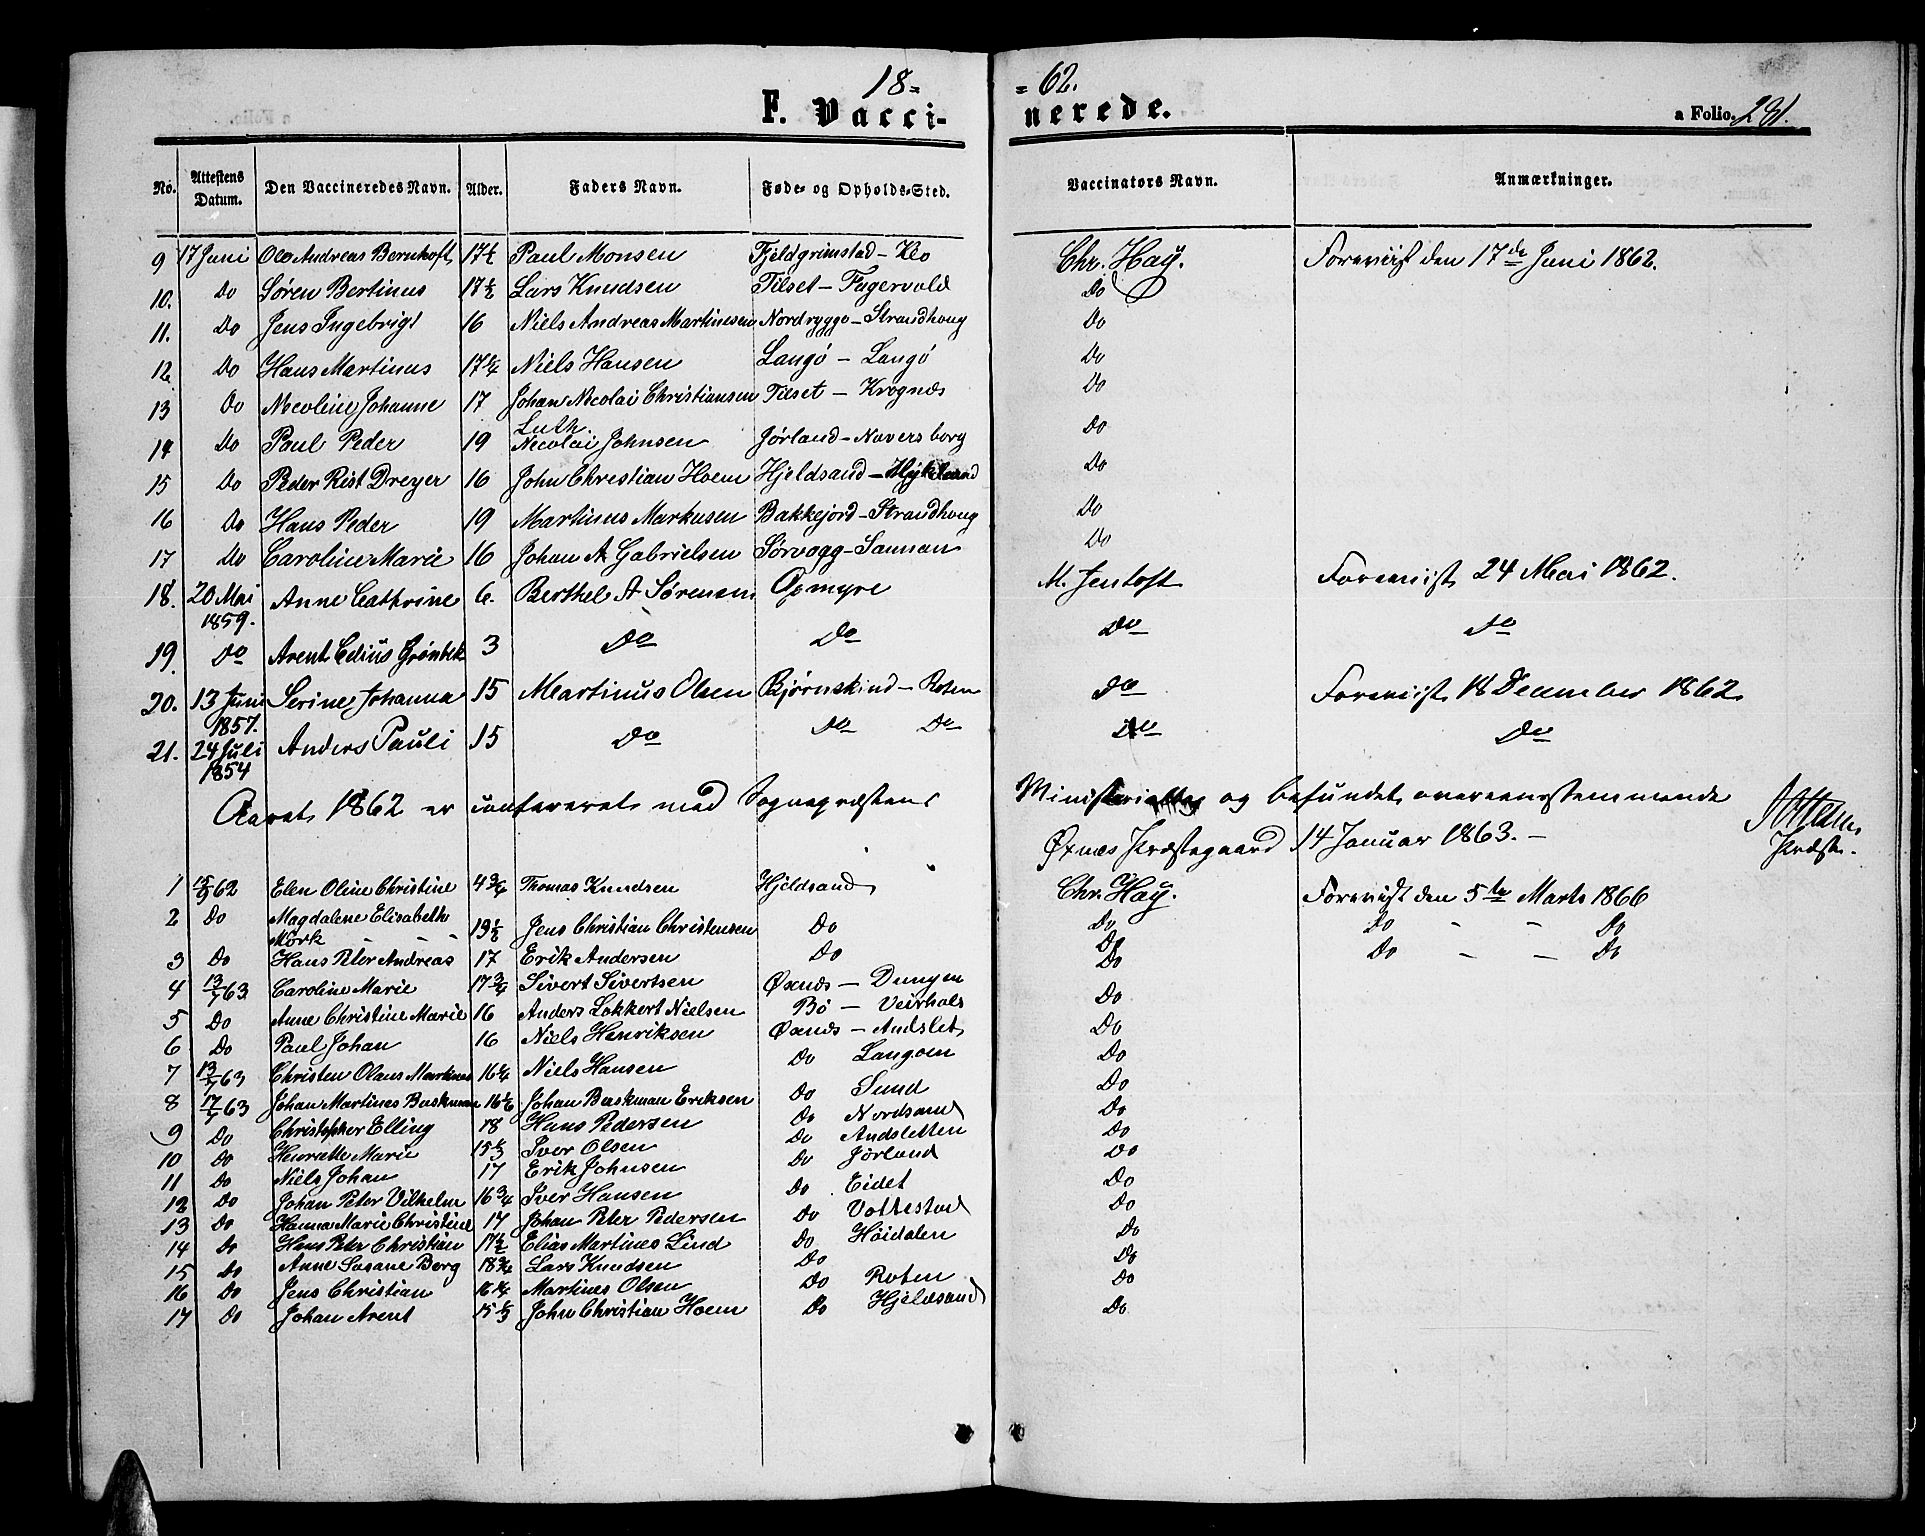 18= =62.
F. Vacci- nerede. a Folio. 231.
No. Attestens Datum. Den Vaccineredes Navn. Alder. Faders Navn. Føde- og Opholds-Sted. Vaccinators Navn. Anmærkninger.
9 17 Juni Ole Andreas Bernhoft 17½ Paul Monsen Fjeldgrimstad - Klo Chr. Hay. Foreviist den 17de Juni 1862.
10. Do Søren Bertinus 17½ Lars Knudsen Tilset - Fagervold Do
11. Do Jens Ingebrigt 16 Niels Andreas Martinesen Nordrygge - Strandhoug Do
12 Do Hans Martinus 17¼ Niels Hansen Langø - Langø Do
13 Do Nicoline Johanne 17 Johan Nicolai Christiansen Tilset - Krognæs Do
14 Do Paul Peder 19 Luth Nicolai Johnsen Jørland - Naversborg Do
15 Do Peder Rist Dreyer 16 John Christian Hoem Hjeldsand - Do
16 Do Hans Peder 19 Martinus Markusen Bakkejord - Strandhoug Do
17 Do Caroline Marie 16 Johan A Gabrielsen Sørvaag - Sannan Do
18. 20 Mai 1859. Anne Cathrine 6. Berthel A Sørensen Opmyre M. Jentoft Foreviist 24 Mai 1862.
19. Do Arent Edius Grønbek 3 Do Do Do Do
20. 13 Juni 1857. Serine Johanna 15 Martinus Olsen Bjørnskind - Roten Do Foreviist 18 December 1862
21. 24 Juli 1854 Anders Pauli 15 Do Do Do Do Do
Aaret 1862 er confereret med Sognepræstens Ministerialbog og befundet overeensstemmende
Øxnes Præstegaard 14 Januar 1863. - Præst.
1 15/9 62 Elen Oline Christine 4¾ Thomas Knudsen Hjeldsand Chr. Hay. Foreviist den 5te Marts 1866
2 Do Magdalene Elisabeth Mörk 19½ Jens Christian Christensen Do Do Do - - Do
3 Do Hans Peter Andreas 17 Erik Andersen Do Do Do - - Do
4 13/7 63 Caroline Marie 17¾ Sivert Sivertsen Øxnæs - Dungen Do
5 Do Anne Christine Marie 16 Anders Lokkert Nielsen Bø - Veirhals Do
6 Do Paul Johan 16 Niels Henriksen Øxnæs - Andslet Do
7 13/7 63 Christen Olaus Martines 16¼ Niels Hansen Do Langoen Do
8 17/7 63 Johan Martines Buskman 16½ Johan Buskman Eriksen Do Sund Do
9 Do Christopher Elling 18 Hans Pedersen Do Nordsand Do
10 Do Henrette Marie 15⅓ Iver Olsen Do Andsletten Do
11 Do Niels Johan 17 Erik Johnsen Do Jørland Do
12 Do Johan Peter Vilhelm 16¾ Iver Hansen Do Eidet Do
13 Do Hanna Marie Christine 17 Johan Peter Pedersen Do Vottestad Do
14 Do Hans Peter Christian 17½ Elias Martines Lind Do Høidalen Do
15 Do Anne Susane Berg 18¾ Lars Knudsen Do Do
16 Do Jens Christian 16¼ Martines Olsen Do Roten Do
17 Do Johan Arent 15⅓ John Christian Hoem Do Hjeldsand Do